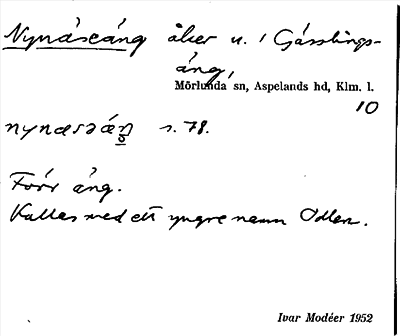 Nynäseäng åker n. i Gässlings-
äng,
Mörlunda sn, Aspelands hd, Klm. l.
10
s. 78.
Förr äng.
Kallas med ett yngre namn Odlen.
Ivar Modéer 1952